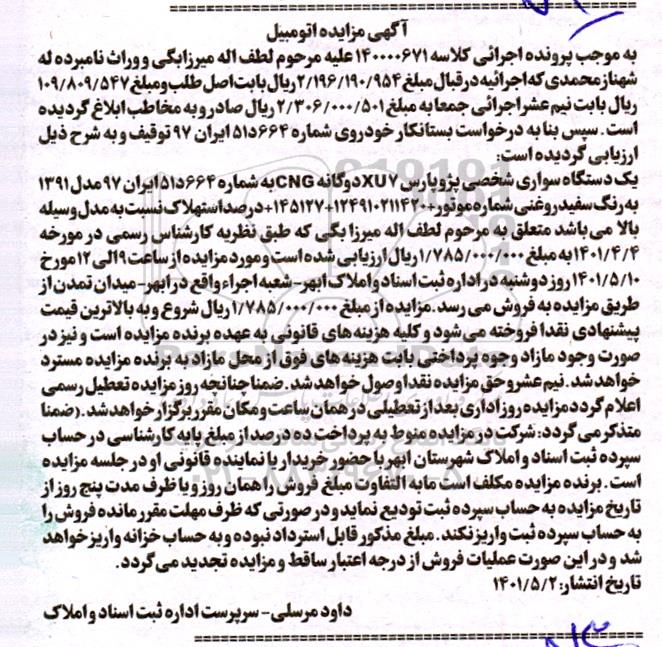 آگهی مزایده اتومبیل
به موجب پرونده اجرائی کلاسه ۱۴۰۰۰۰۶۷۱ علیه مرحوم لطف اله میرزابگی و وراث نامبرده له
شهناز محمدی که اجرائیه در قبال مبلغ ۲/۱۹۶/۱۹۰/۹۵۴ ریال بابت اصل طلب و مبلغ ۱۰۹/۸۰۹/۵۴۷
ریال بابت نیم عشر اجرائی جمعا به مبلغ ۲/۳۰۶/۰۰۰/۵۰۱ ریال صادر و به مخاطب ابلاغ گردیده
است . سپس بنا به درخواست بستانکار خودروی شماره ۶۶۴د۵۱ ایران ۹۷ توقیف و به شرح ذیل
ارزیابی گردیده است:
یک دستگاه سواری شخصی پژو پارس XU7 دوگانه CNG به شماره ۶۶۴د۵۱ ایران ۹۷ مدل ۱۳۹۱
به رنگ سفید روغنی شماره موتور ۱۲۴۹۱۰۲۱۱۴۲۰+۱۴۵۱۲۷+ درصد استهلاک نسبت به مدل وسیله
بالا می باشد متعلق به مرحوم لطف اله میرزا بگی که طبق نظریه کارشناس رسمی در مورخه
۱۴۰۱/۴/۴ به مبلغ ۱/۷۸۵/۰۰۰/۰۰۰ ریال ارزیابی شده است و مورد مزایده از ساعت ۹ الی ۱۲ مورخ
۱۴۰۱/۵/۱۰ روز دوشنبه در اداره ثبت اسناد و املاک ابهر- شعبه اجراء واقع در ابهر- میدان تمدن از
طریق مزایده به فروش می رسد .مزایده از مبلغ ۱/۷۸۵/۰۰۰/۰۰۰ ریال شروع و به بالاترین قیمت
پیشنهادی نقدا فروخته می شود و کلیه هزینه های قانونی به عهده برنده مزایده است و نیز در
صورت وجود مازاد وجوه پرداختی بابت هزینه های فوق از محل مازاد به برنده مزایده مسترد
خواهد شد . نیم عشر و حق مزایده نقدا وصول خواهد شد . ضمنا چنانچه روز مزایده تعطیل رسمی
اعلام گردد مزایده روز اداری بعد از تعطیلی در همان ساعت و مکان مقرر برگزار خواهد شد . (ضمنا
متذکر می گردد: شرکت در مزایده منوط به پرداخت ده درصد از مبلغ پایه کارشناسی در حساب
سپرده ثبت اسناد و املاک شهرستان ابهر با حضور خریدار یا نماینده قانونی او در جلسه مزایده
است . برنده مزایده مکلف است مابه التفاوت مبلغ فروش را همان روز و یا ظرف مدت پنج روز از
تاریخ مزایده به حساب سپرده ثبت تودیع نماید و در صورتی که ظرف مهلت مقرر مانده فروش را
به حساب سپرده ثبت واریز نکند . مبلغ مذکور قابل استرداد نبوده و به حساب خزانه واریز خواهد
شد و در این صورت عملیات فروش از درجه اعتبار ساقط و مزایده تجدید می گردد .
تاریخ انتشار: ۱۴۰۱/۵/۲
داود مرسلی- سرپرست اداره ثبت اسناد و املاک